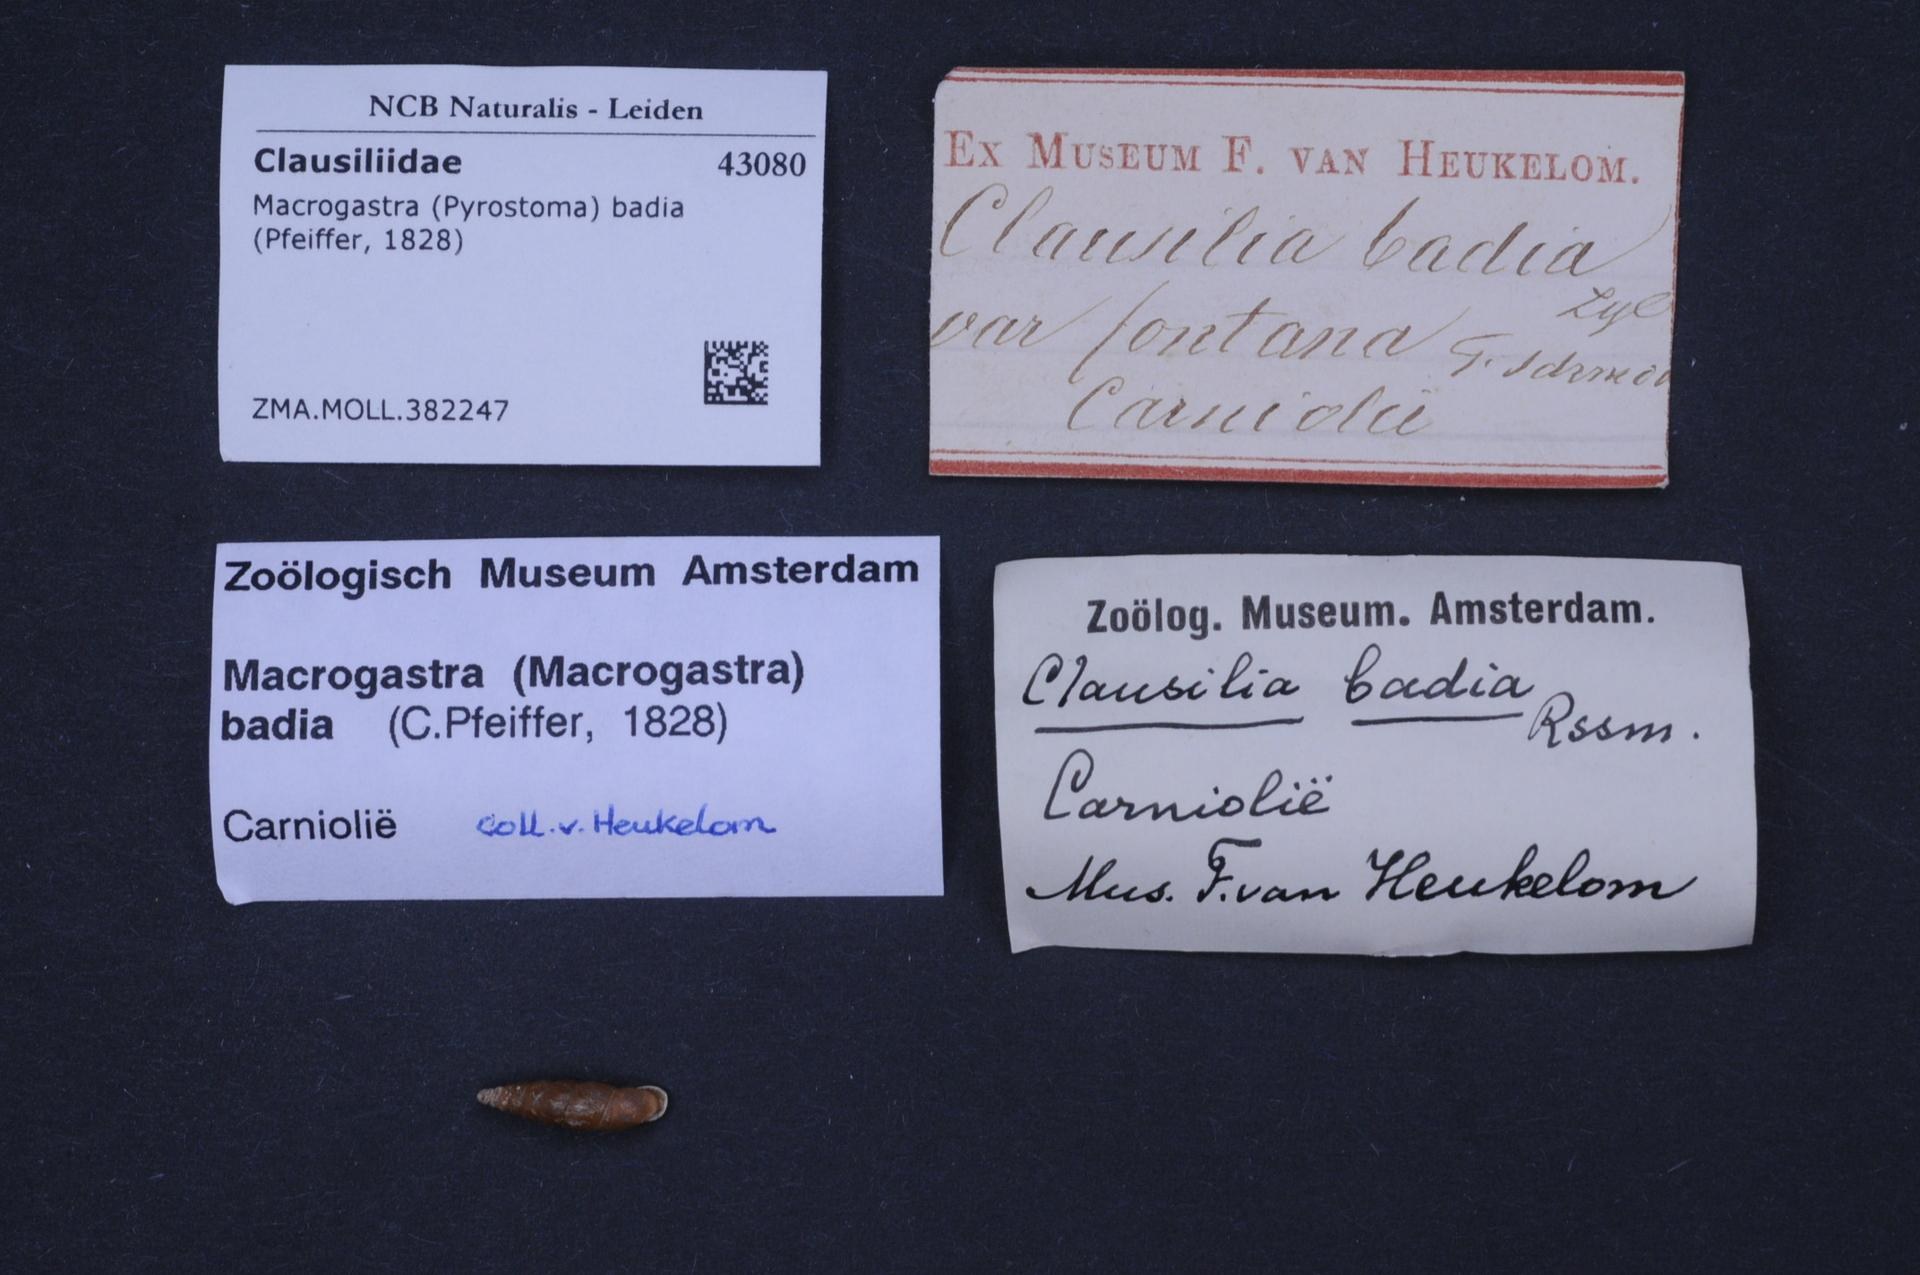 NCB Naturalis - Leiden
Clausiliidae 43080
Macrogastra (Pyrostoma) badia
(Pfeiffer, 1828)
ZMA.MOLL.382247
Ex Museum F. van Heukelom.
Clausilia badia
var fontana
Zoölogisch Museum Amsterdam
Macrogastra (Macrogastra)
badia (C.Pfeiffer, 1828)
Carniolië coll. v. Heukelom
Zoölog. Museum. Amsterdam.
Clausilia badia
Rssm.
Carniolië
Mus. F. van Heukelom